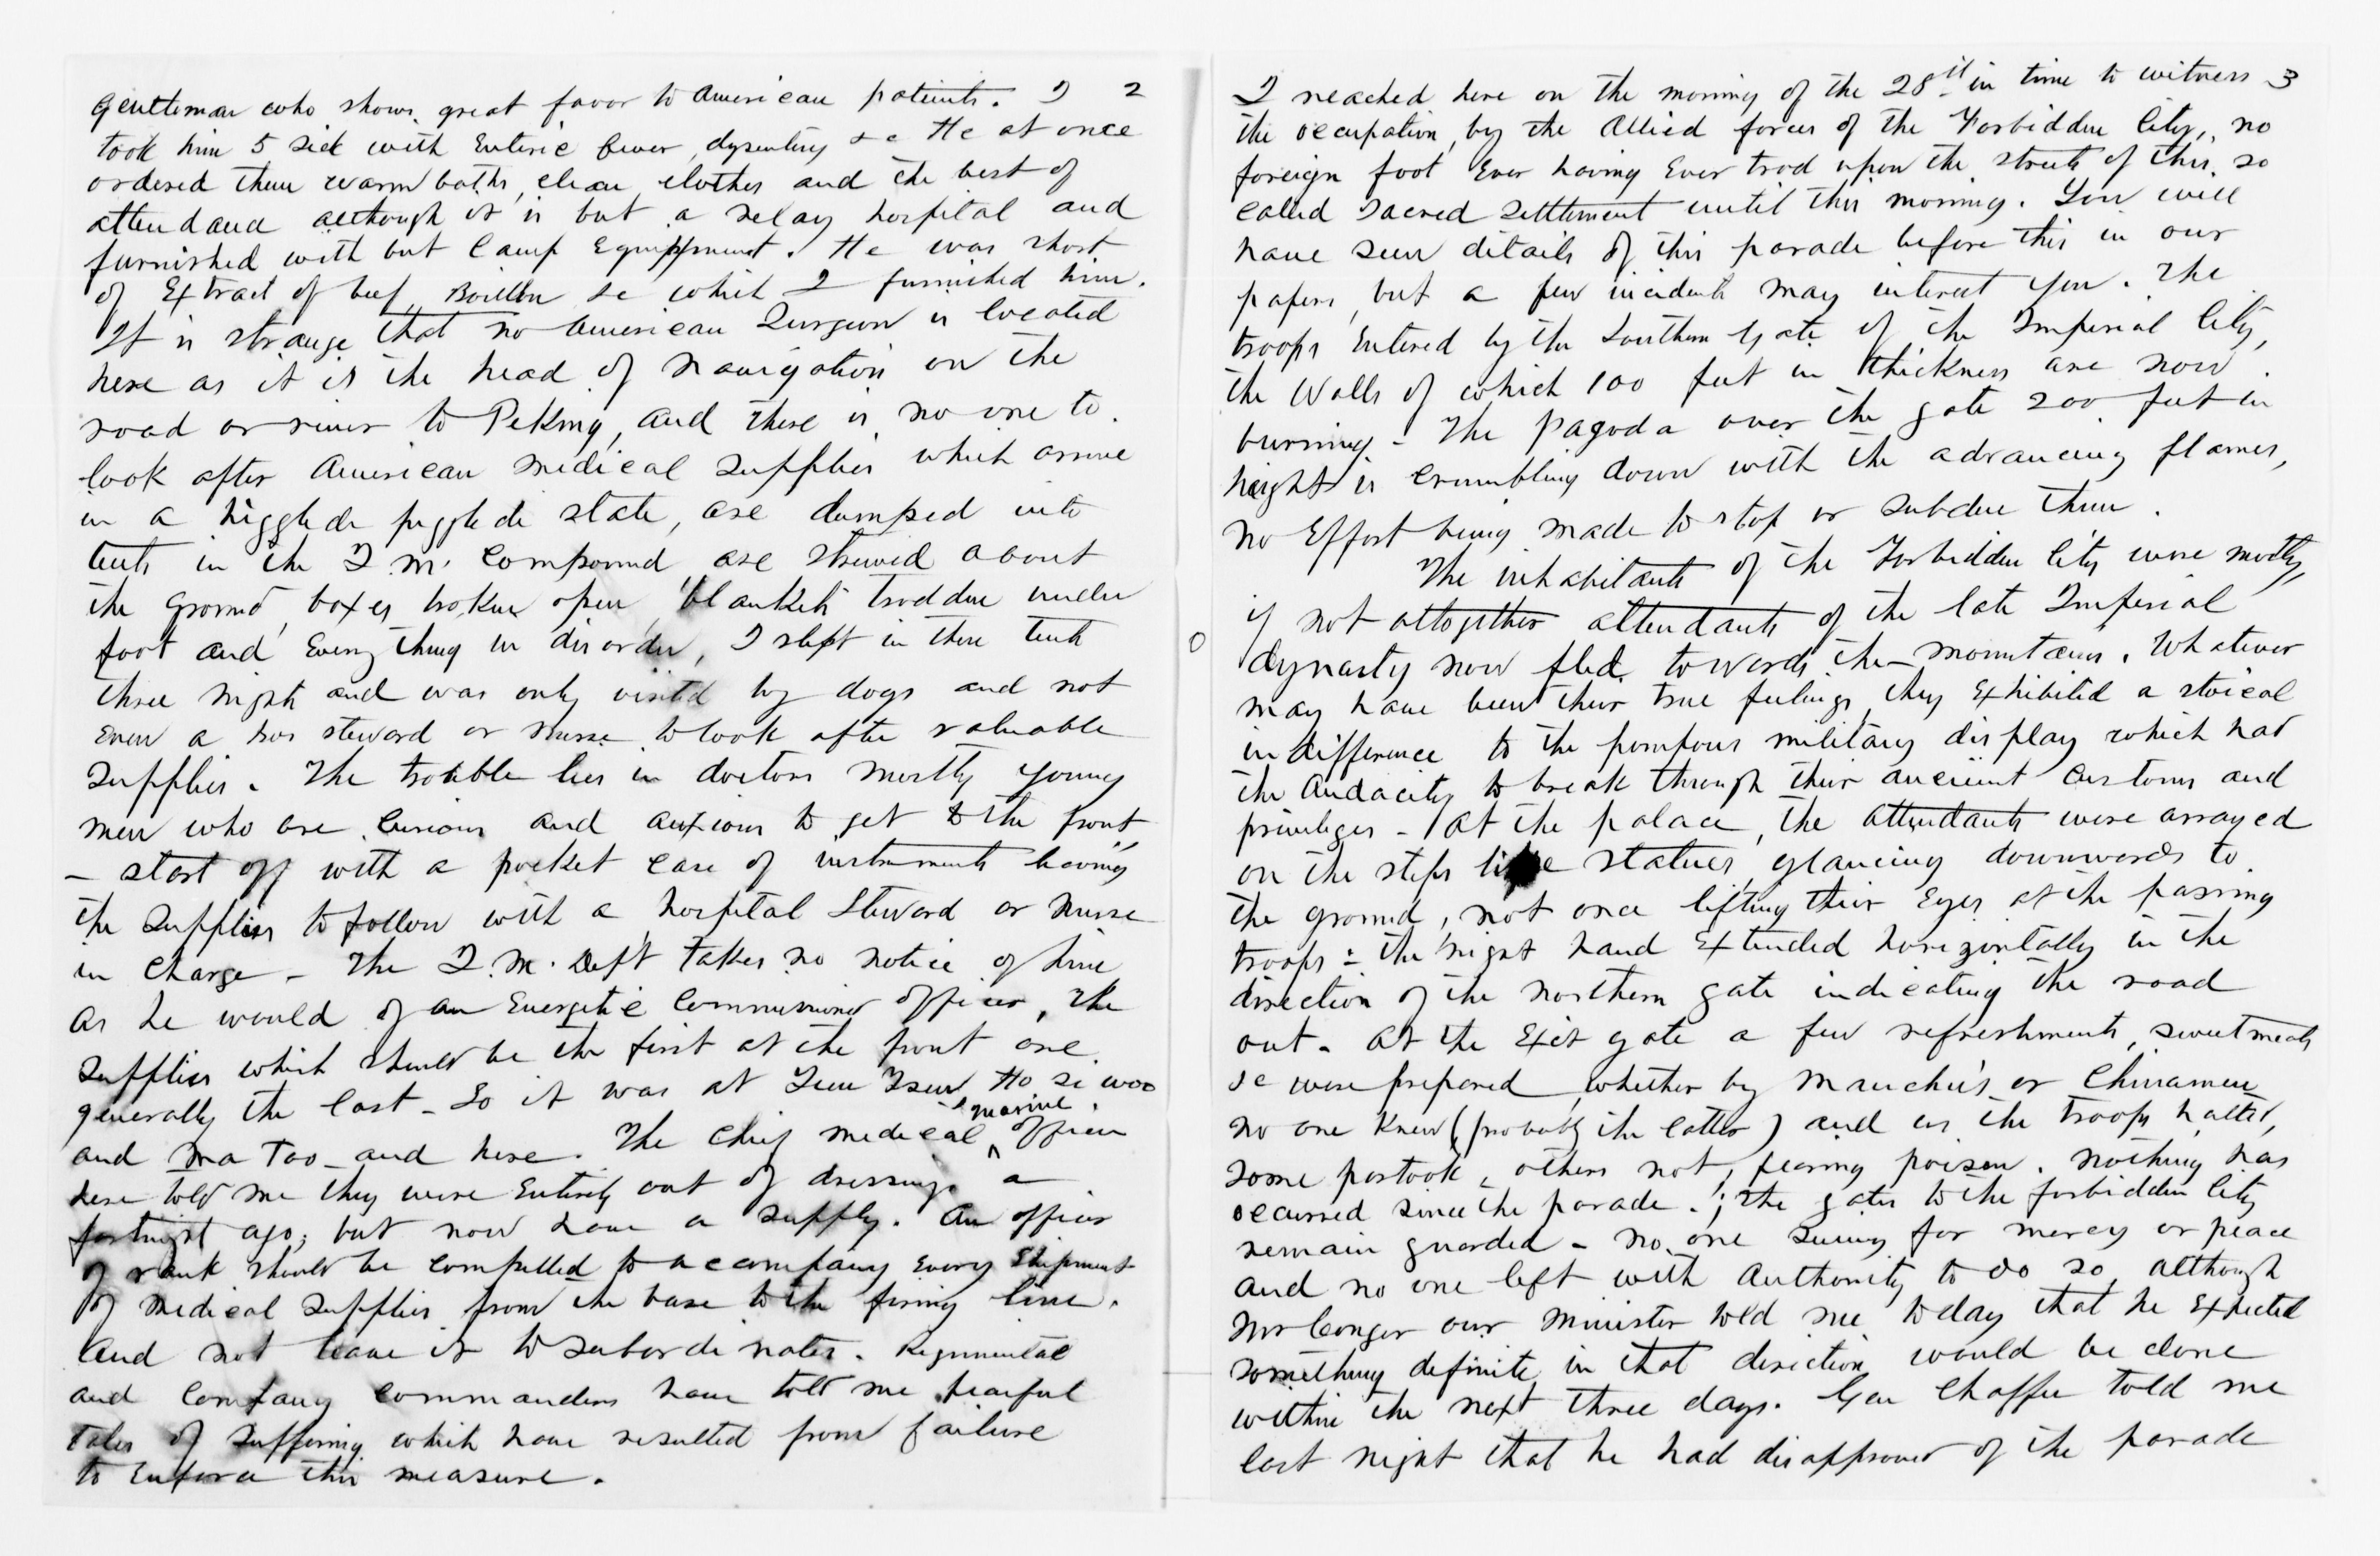 gentleman who shows great favor to American patients. I 2
took him 5 sick with Enteric fever, dysentery &c He at once
ordered them warm baths, clean clothes and the best of
attendance although it is but a relay hospital and
furnished with but Camp Equippment. He was short
of Extract of beef, Boillon &c which I furnished him.
It is strange that no American Surgeon is located
here as it is the head of navigation on the
road or river to Peking, and there is no one to
look after American medical supplies which arrive
in a higglede pigglede state, are dumped into
tents in the Q.M. Compound, are strewed about
the ground, boxes broken open, blankets trodden under
foot and Every thing in disorder, I slept in these tents
three nights and was only visited by dogs and not
even a hos steward or nurse to look after valuable
supplies. The trouble lies in doctors mostly young
men who are curious and anxious to get to the front,
- start off with a pocket case of instruments leaving
the supplies to follow with a hospital Steward or nurse
in charge - The Q.M. Dept takes no notice of him
as he would of an Energetic Commissioned officer, The
supplies which should be the first at the front are
generally the last - So it was at Tien Tsin, Ho si woo
and Ma Tao - and here. The chief medical marine officer
here told me they were Entirely out of dressings a
fortnight ago; but now have a supply. An officer
of rank should be compelled to accompany every shipment
of medical supplies from the base to the firing line.
And not leave it to subordinates. Regimental
and Company commanders have told me fearful
tales of suffering which have resulted from failure
to Enforce this measure.
I reached here on the morning of the 28th in time to witness 3
the occupation, by the Allied forces of the Forbidden City, no
foreign foot Ever having Ever trod upon the streets of this so
called sacred settlement until this morning. You will
have seen details of this parade before this in our
papers, but a few incidents may interest you. The
troops Entered by the Southern Gate of the Imperial City,
the Walls of which 100 feet in thickness are now
burning - The pagoda over the gate 200 feet in
height is crumbling down with the advancing flames,
no Effort being made to stop or subdue them.
The inhabitants of the Forbidden City were mostly,
if not altogether attendants of the late Imperial
dynasty now fled towards the mountains. Whatever
may have been their true feelings, they Exhibited a stoical
indifference to the pompous military display which had
the Audacity to break through their ancient customs and
privileges - At the palace, the attendants were arrayed
on the steps like statues, glancing downwards to
the ground, not once lifting their Eyes at the passing
troops = the right hand Extended horizontally in the
direction of the northern gate indicating the road
out. At the Exit gate a few refreshments, sweetmeats
&c were prepared, whether by Manchu's or Chinamen
no one knew (probably the latter) and as the troops halted,
some partook, others not, fearing poison. Nothing has
occurred since the parade.; the gates to the forbidden City
remain guarded - no one suing for mercy or peace
and no one left with Authority to do so, although
Mr Conger our minister told me today that he Expected
something definite in that direction would be done
within the next three days. Gen Chaffee told me
last night that he had disapproved of the parade